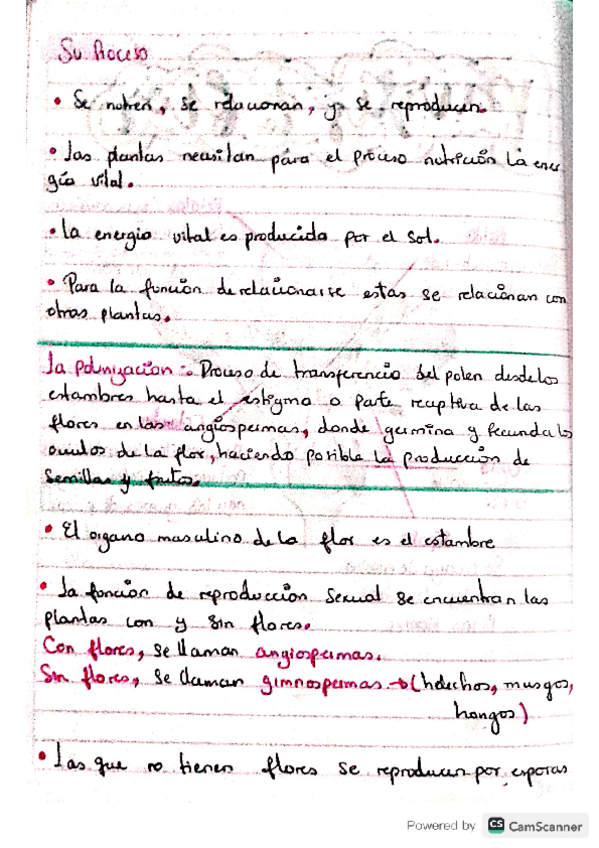 Su Proceso
• Se nutren, se relacionan, y se reproducen.
• Las plantas necesitan para el proceso nutrición la ener
gía vital.
• la energia vital es producida por el sol.
• Para la función de relacionarse estas se relacionan con
otras plantas.
La polinización: Proceso de transferencia del polen desde los
estambres hasta el estigma o parte receptiva de las
flores en las angiospermas, donde germina y fecunda los
ovulos de la flor, haciendo posible la producción de
semillas y frutos.
• El organo masculino de la flor es el estambre
• La función de reproducción sexual se encuentran las
plantas con y sin flores.
Con flores, se llaman angiospermas.
Sin flores, se llaman gimnospermas → (helechos, musgos,
hongos)
• Las que no tienen flores se reproducen por esporas
Powered by CS CamScanner